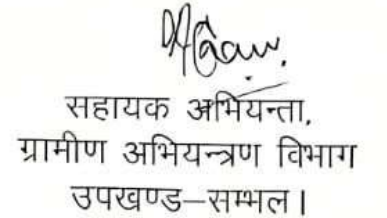 सहायक अभियन्ता,
ग्रामीण अभियन्त्रण विभाग
उपखण्ड–सम्भल।